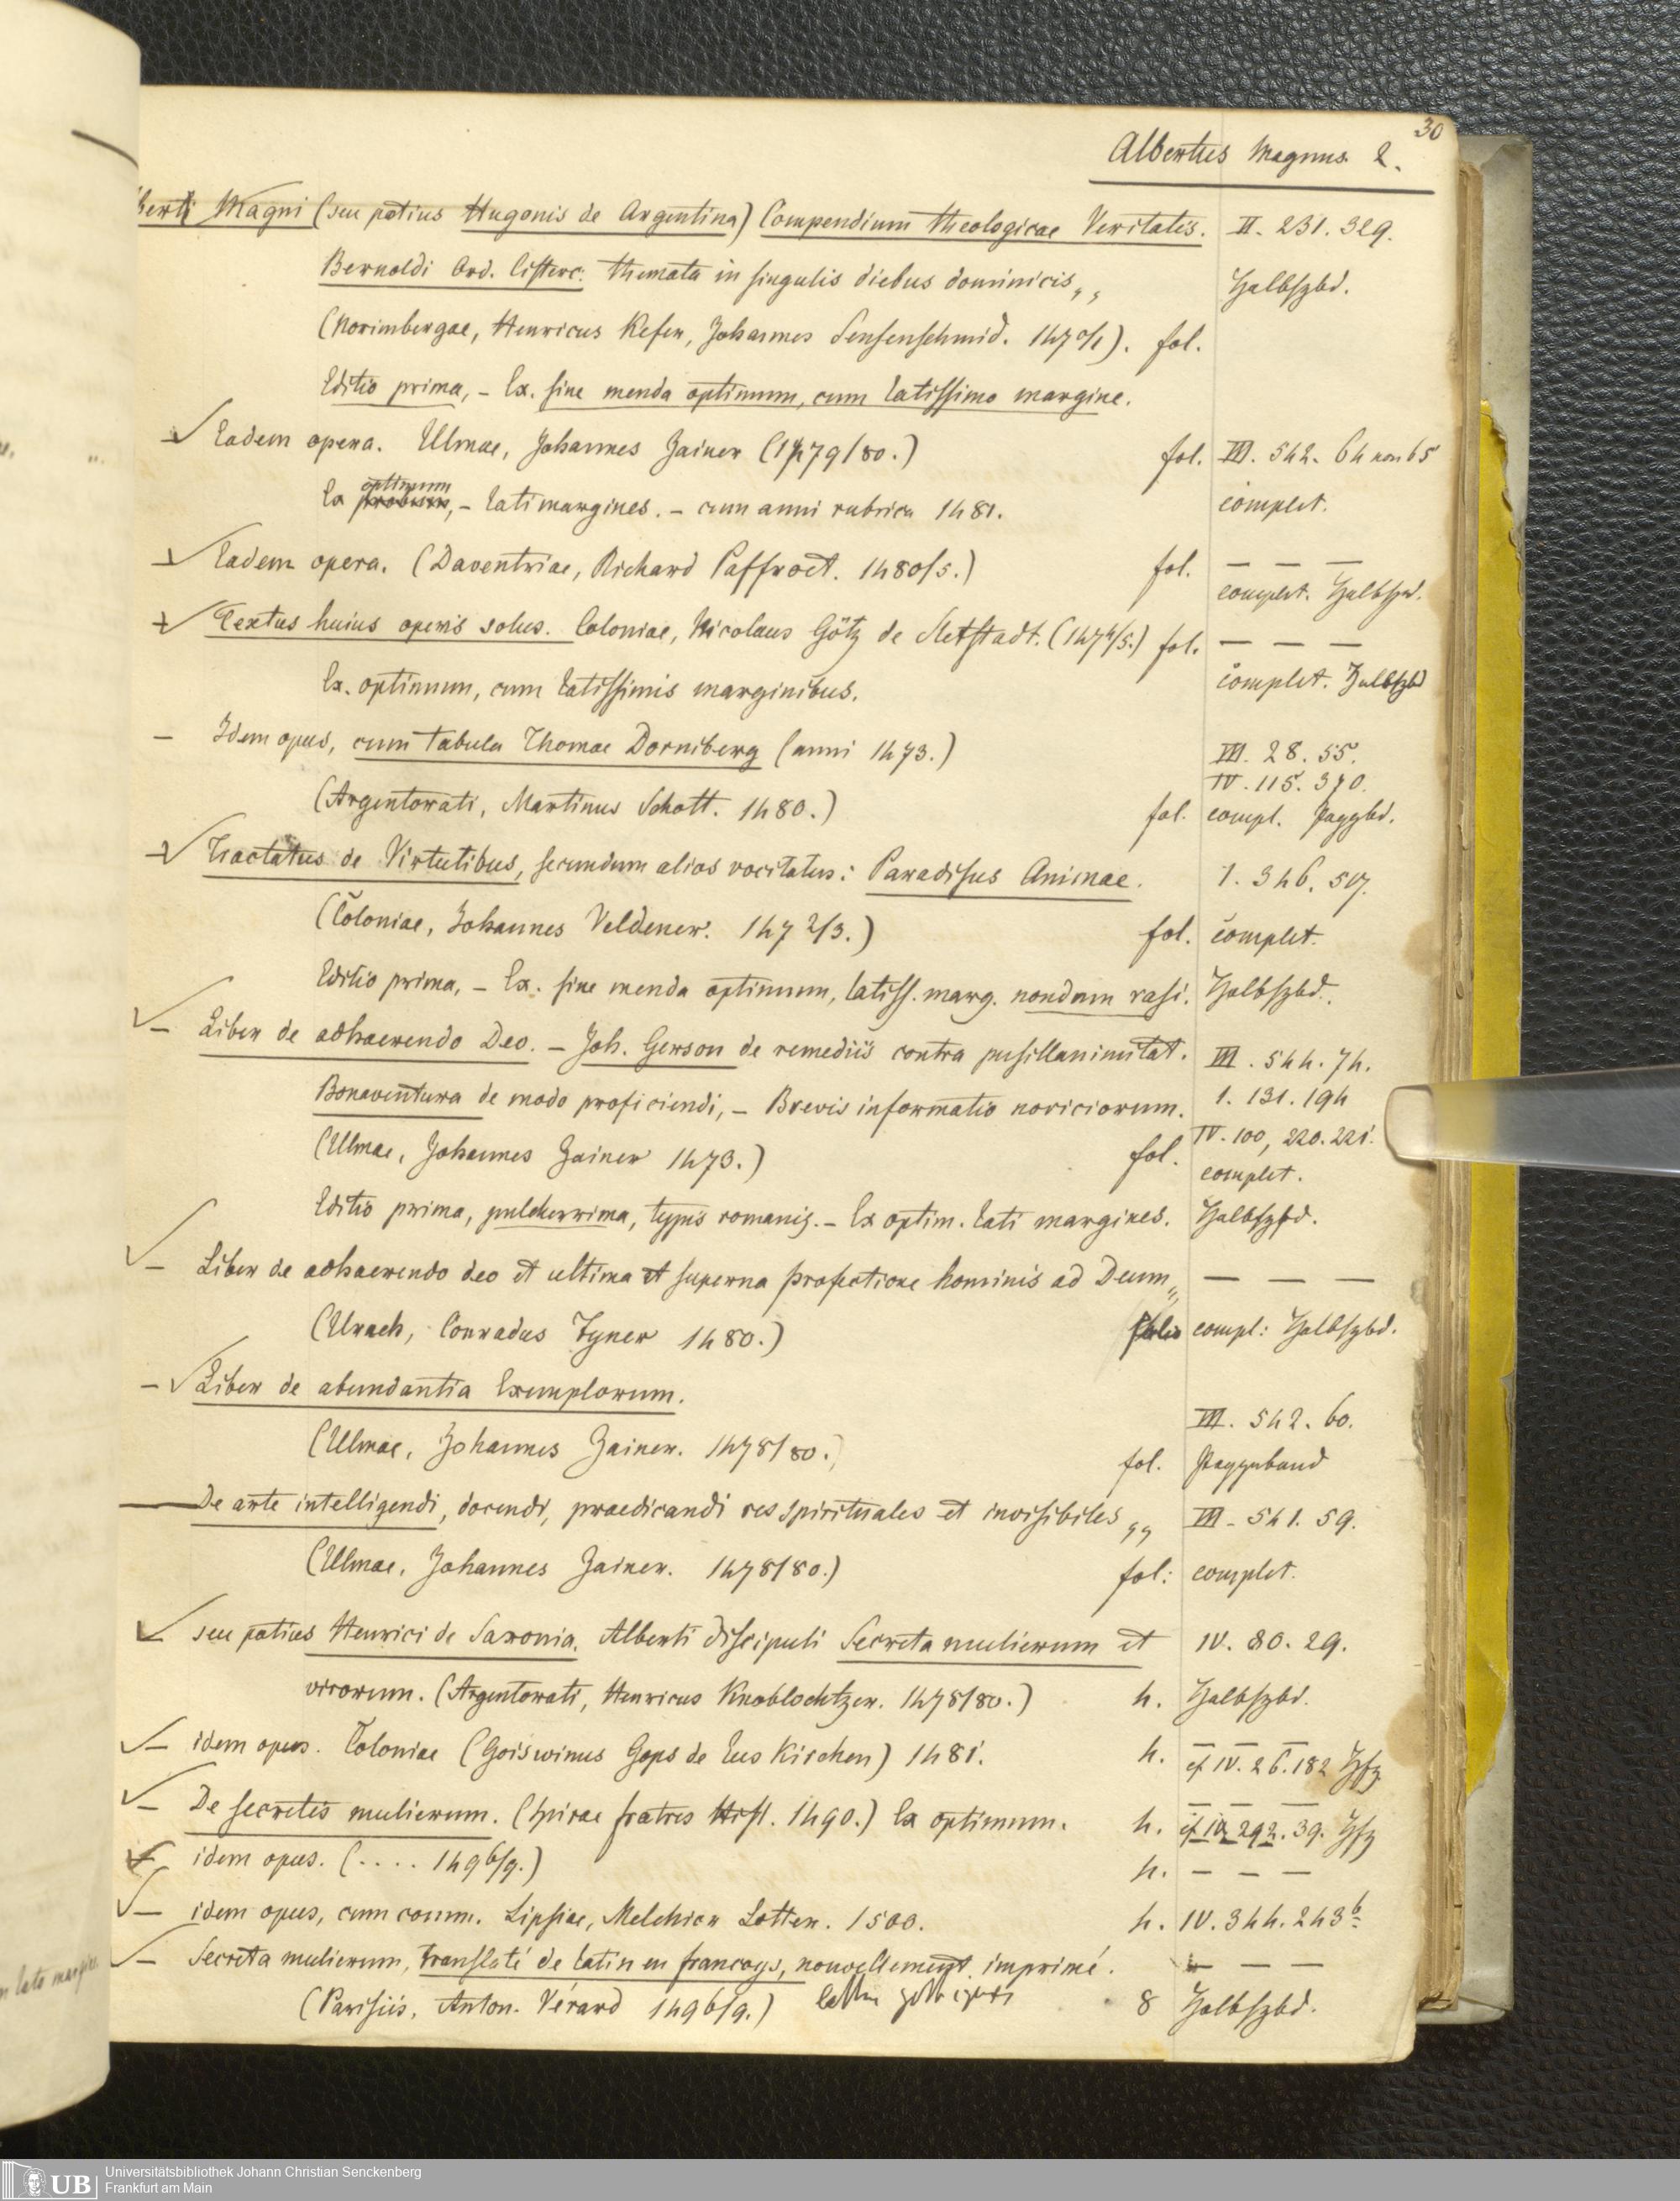 30
Albertus Magnus 2.
berti Magni (seu potius Hugonis de Argentina) Compendium theologicae Veritatis. II. 231. 329.
Bernoldi Ord. Cisterc: themata in singulis diebus dominicis,, Halbfzbd.
(Norimbergae, Henricus Kefer, Johannes Sensenschmid. 1470/1). fol.
Editio prima, – Ex. sine menda optimum, cum latissimo margine.
Eadem opera. Ulmae, Johannes Zainer (1479/80.) fol. III. 542. 64 non 65
Ex optimum, – lati margines. – cum anni rubrica 1481. complet.
Eadem opera. (Daventriae, Richard Paffroet. 1480/5.) fol. — — —
complet. Halbfzbd.
Textus huius operis solus. Coloniae, Nicolaus Götz de Sletstadt. (1474/5.) fol. — — —
Ex. optimum, cum latissimis marginibus. complet. Halbfzbd
– Idem opus, cum tabula Thomae Dorniberg (anni 1473.) III. 28. 55.
IV. 115. 370.
(Argentorati, Martinus Schott. 1480.) fol. compl. Pappbd.
Tractatus de Virtutibus, secundum alios vocitatus: Paradisus Animae. I. 346. 517.
(Coloniae, Johannes Veldener. 1472/3.) fol. complet.
Editio prima, – Ex. sine menda optimum, latiss. marg. nondum rasi. Halbfzbd.
– Liber de adhaerendo Deo. – Joh. Gerson de remediis contra pusillanimitat. III. 544. 74.
Bonaventura de modo proficiendi, – Brevis informatio noviciorum. I. 131. 194
IV. 100, 220. 221.
(Ulmae, Johannes Zainer 1473.) fol. complet.
Editio prima, pulcherrima, typis romanis. – Ex optim. lati margines. Halbfzbd.
– Liber de adhaerendo deo et ultima et superna profectione hominis ad Deum,, — — —
(Urach, Conradus Fyner 1480.) folio compl: Halbfzbd.
– Liber de abundantia Exemplorum. III. 542. 60.
(Ulmae, Johannes Zainer. 1478/80.) fol. Pappband
— De arte intelligendi, docendi, praedicandi res spirituales et invisibiles,, III – 541. 59.
(Ulmae, Johannes Zainer. 1478/80.) fol: complet.
– seu potius Henrici de Saxonia, Alberti discipuli Secreta mulierum et IV. 80. 29.
virorum. (Argentorati, Henricus Knoblochtzer. 1478/80.) 4. Halbfzbd.
– idem opus. Coloniae (Goiswinus Gops de Eus Kirchen) 1481. 4. — — —
cf. IV. 26. 182 Hfz
– De secretis mulierum. (Spirae fratres Hist. 1490.) Ex optimum. 4. — — —
cf. IV. 292. 39. Hfz
– idem opus. (.... 1496/9.) 4. — — —
– idem opus, cum comm. Lipsiae, Melchior Lotter. 1500. 4. IV. 344. 243b
– Secreta mulierum, translaté de latin en francoys, nouvellement imprimé. — — —
(Parisiis, Anton. Vérard 1496/9.) 8 Halbfzbd.
UB
Universitätsbibliothek Johann Christian Senckenberg
Frankfurt am Main